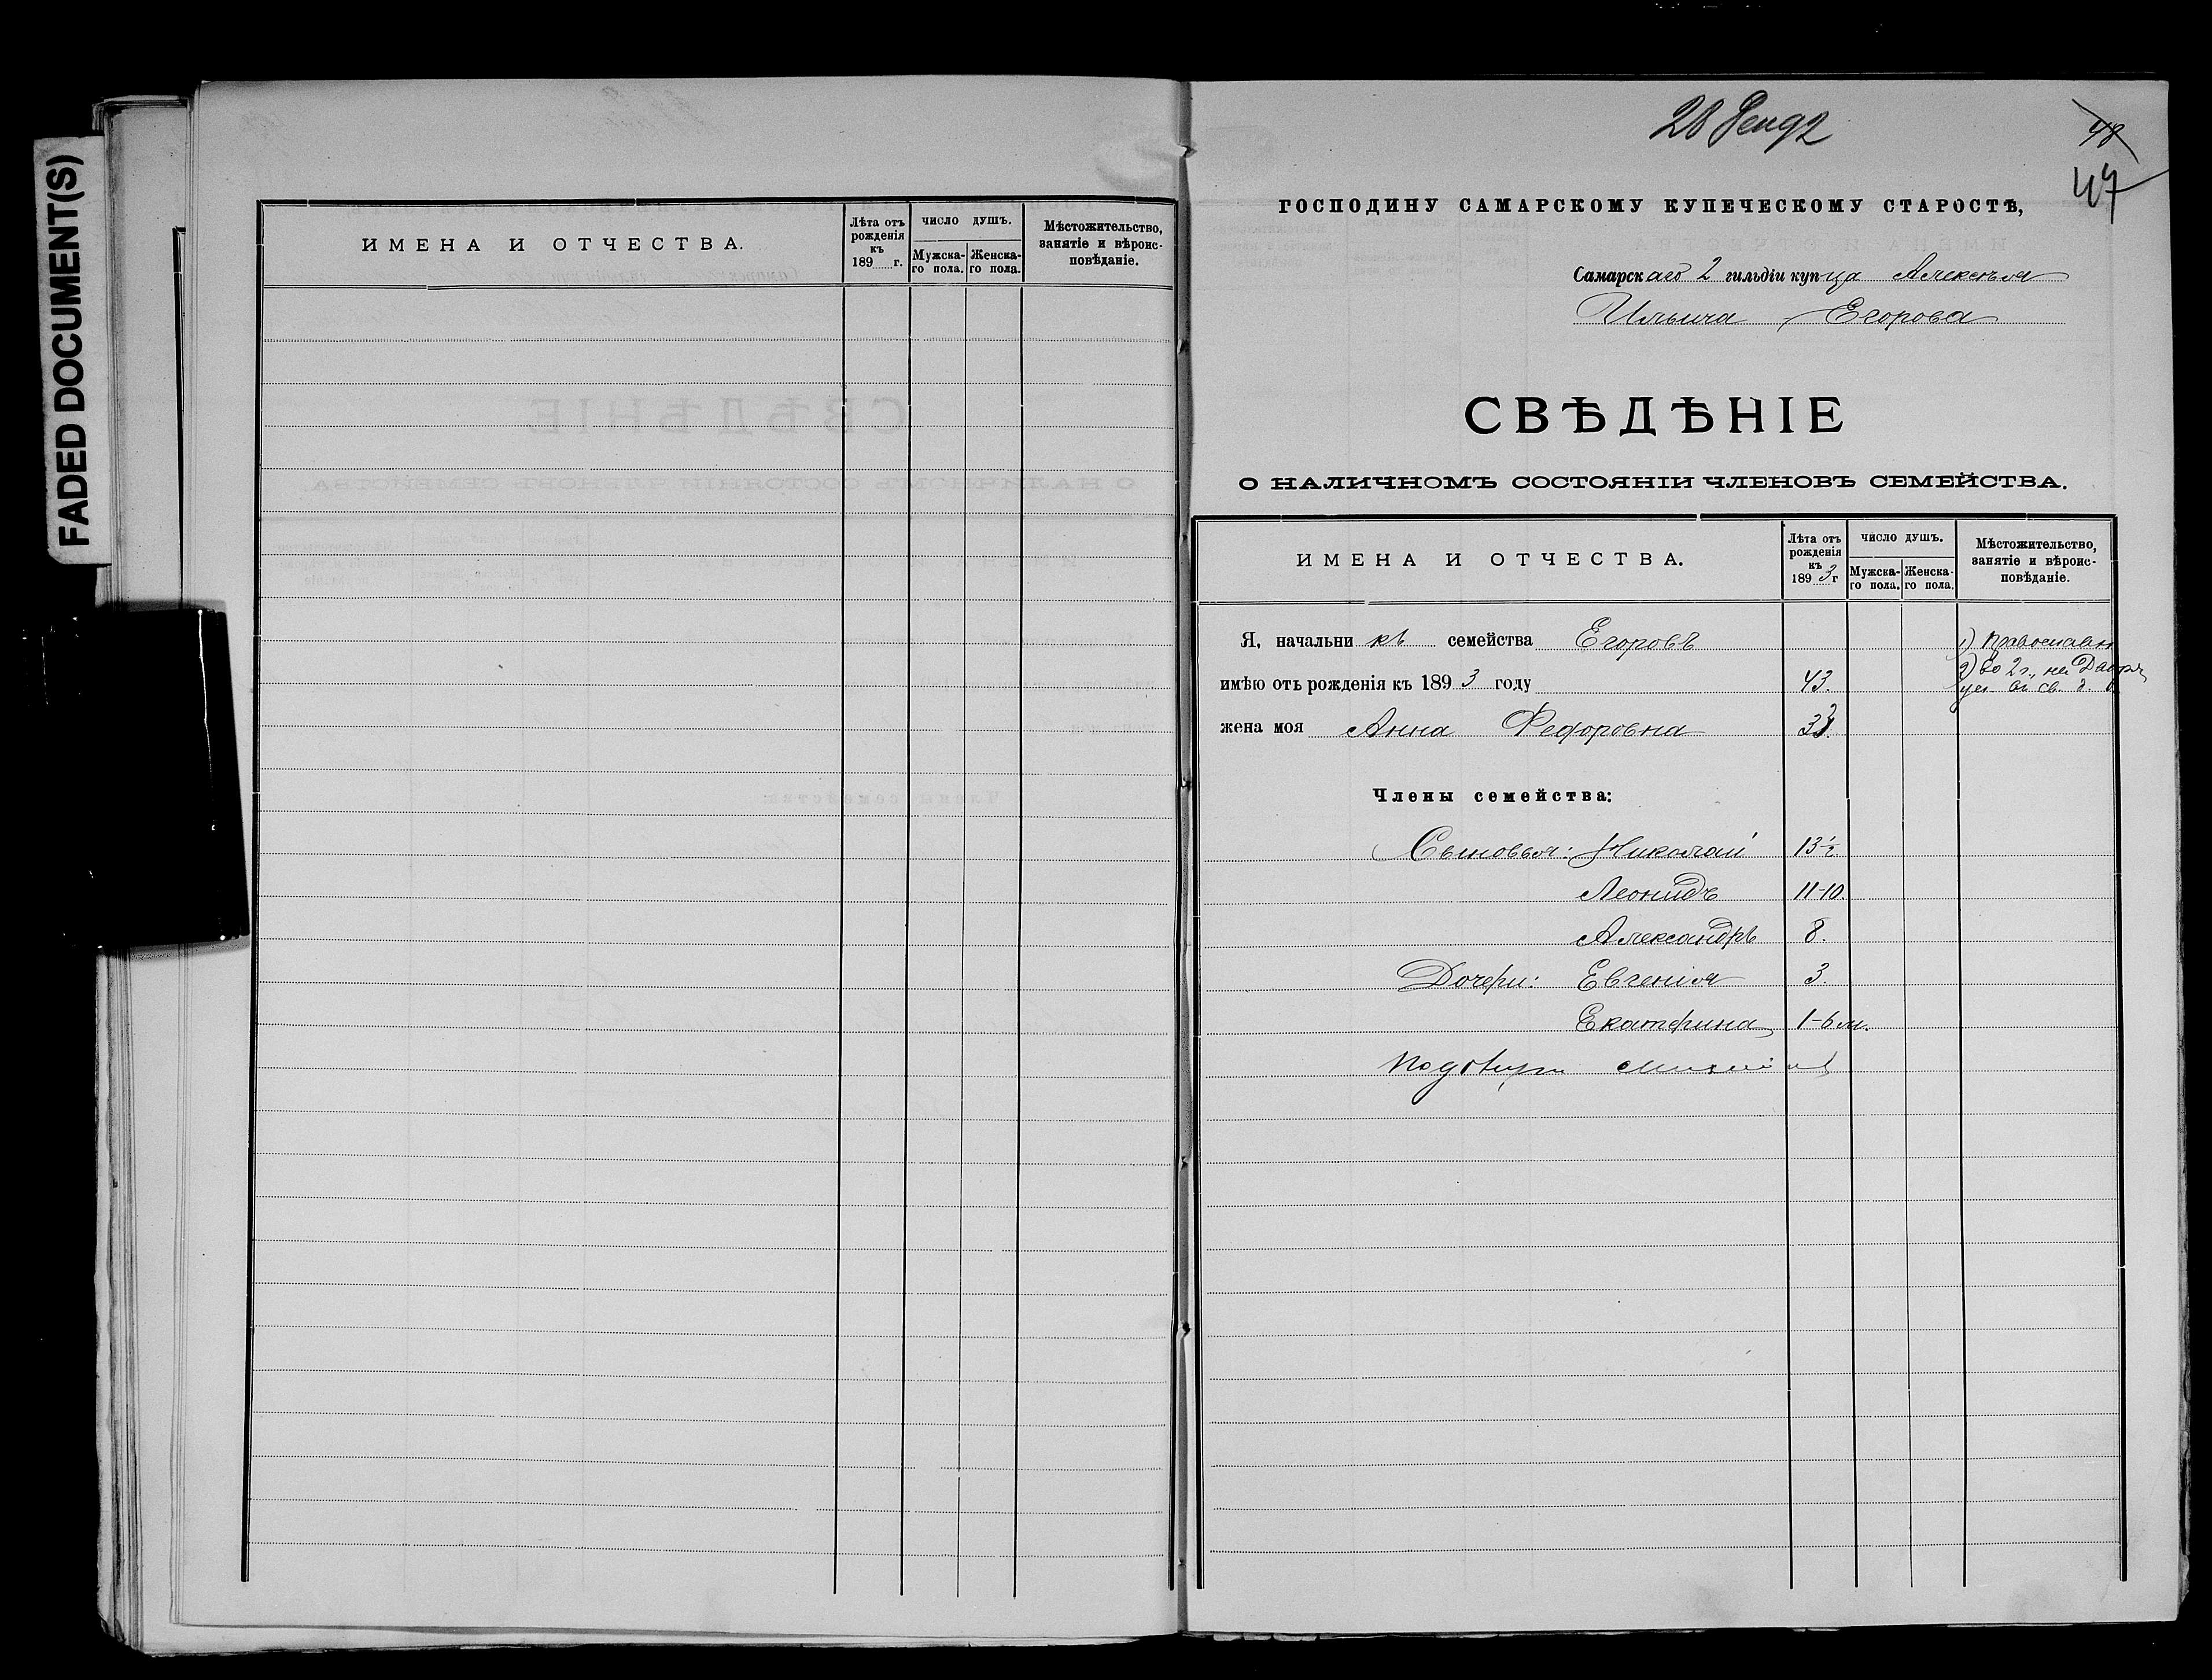 FADED DOCUMENT(S)
ИМЕНА И ОТЧЕСТВА.
Лѣта отъ рожденія къ 189 г.
ЧИСЛО ДУШЪ.
Мужска-го пола.
Женска-го пола.
Мѣстожительство, занятіе и вѣроис-повѣданіе.
28 Декд 2
48
47
ГОСПОДИНУ САМАРСКОМУ КУПЕЧЕСКОМУ СТАРОСТѢ,
Самарскаго 2 гильдіи купца Алексѣя
Ильича Егорова
СВѢДѢНІЕ
О НАЛИЧНОМЪ СОСТОЯНІИ ЧЛЕНОВЪ СЕМЕЙСТВА.
ИМЕНА И ОТЧЕСТВА.
Лѣта отъ рожденія къ 1893 г
ЧИСЛО ДУШЪ.
Мужска-го пола.
Женска-го пола.
Мѣстожительство, занятіе и вѣроис-повѣданіе.
Я, начальникъ семейства Егоровъ 1) православн
имѣю отъ рожденія къ 1893 году 43. 2) во 2 г., на Дворян
ул. въ св. д.
жена моя Анна Федоровна 33.
Члены семейства:
Сыновья: Николай 13½
Леонидъ 11-10.
Александръ 8.
Дочери: Евгенія 3.
Екатерина 1-6 м.